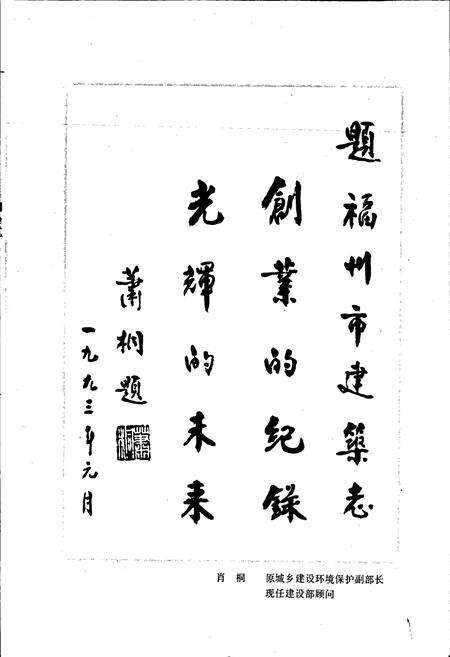 題福州市建築志
創業的紀錄
光輝的未来
蕭桐題
一九九三年元月
肖桐 原城乡建设环境保护副部长
现任建设部顾问